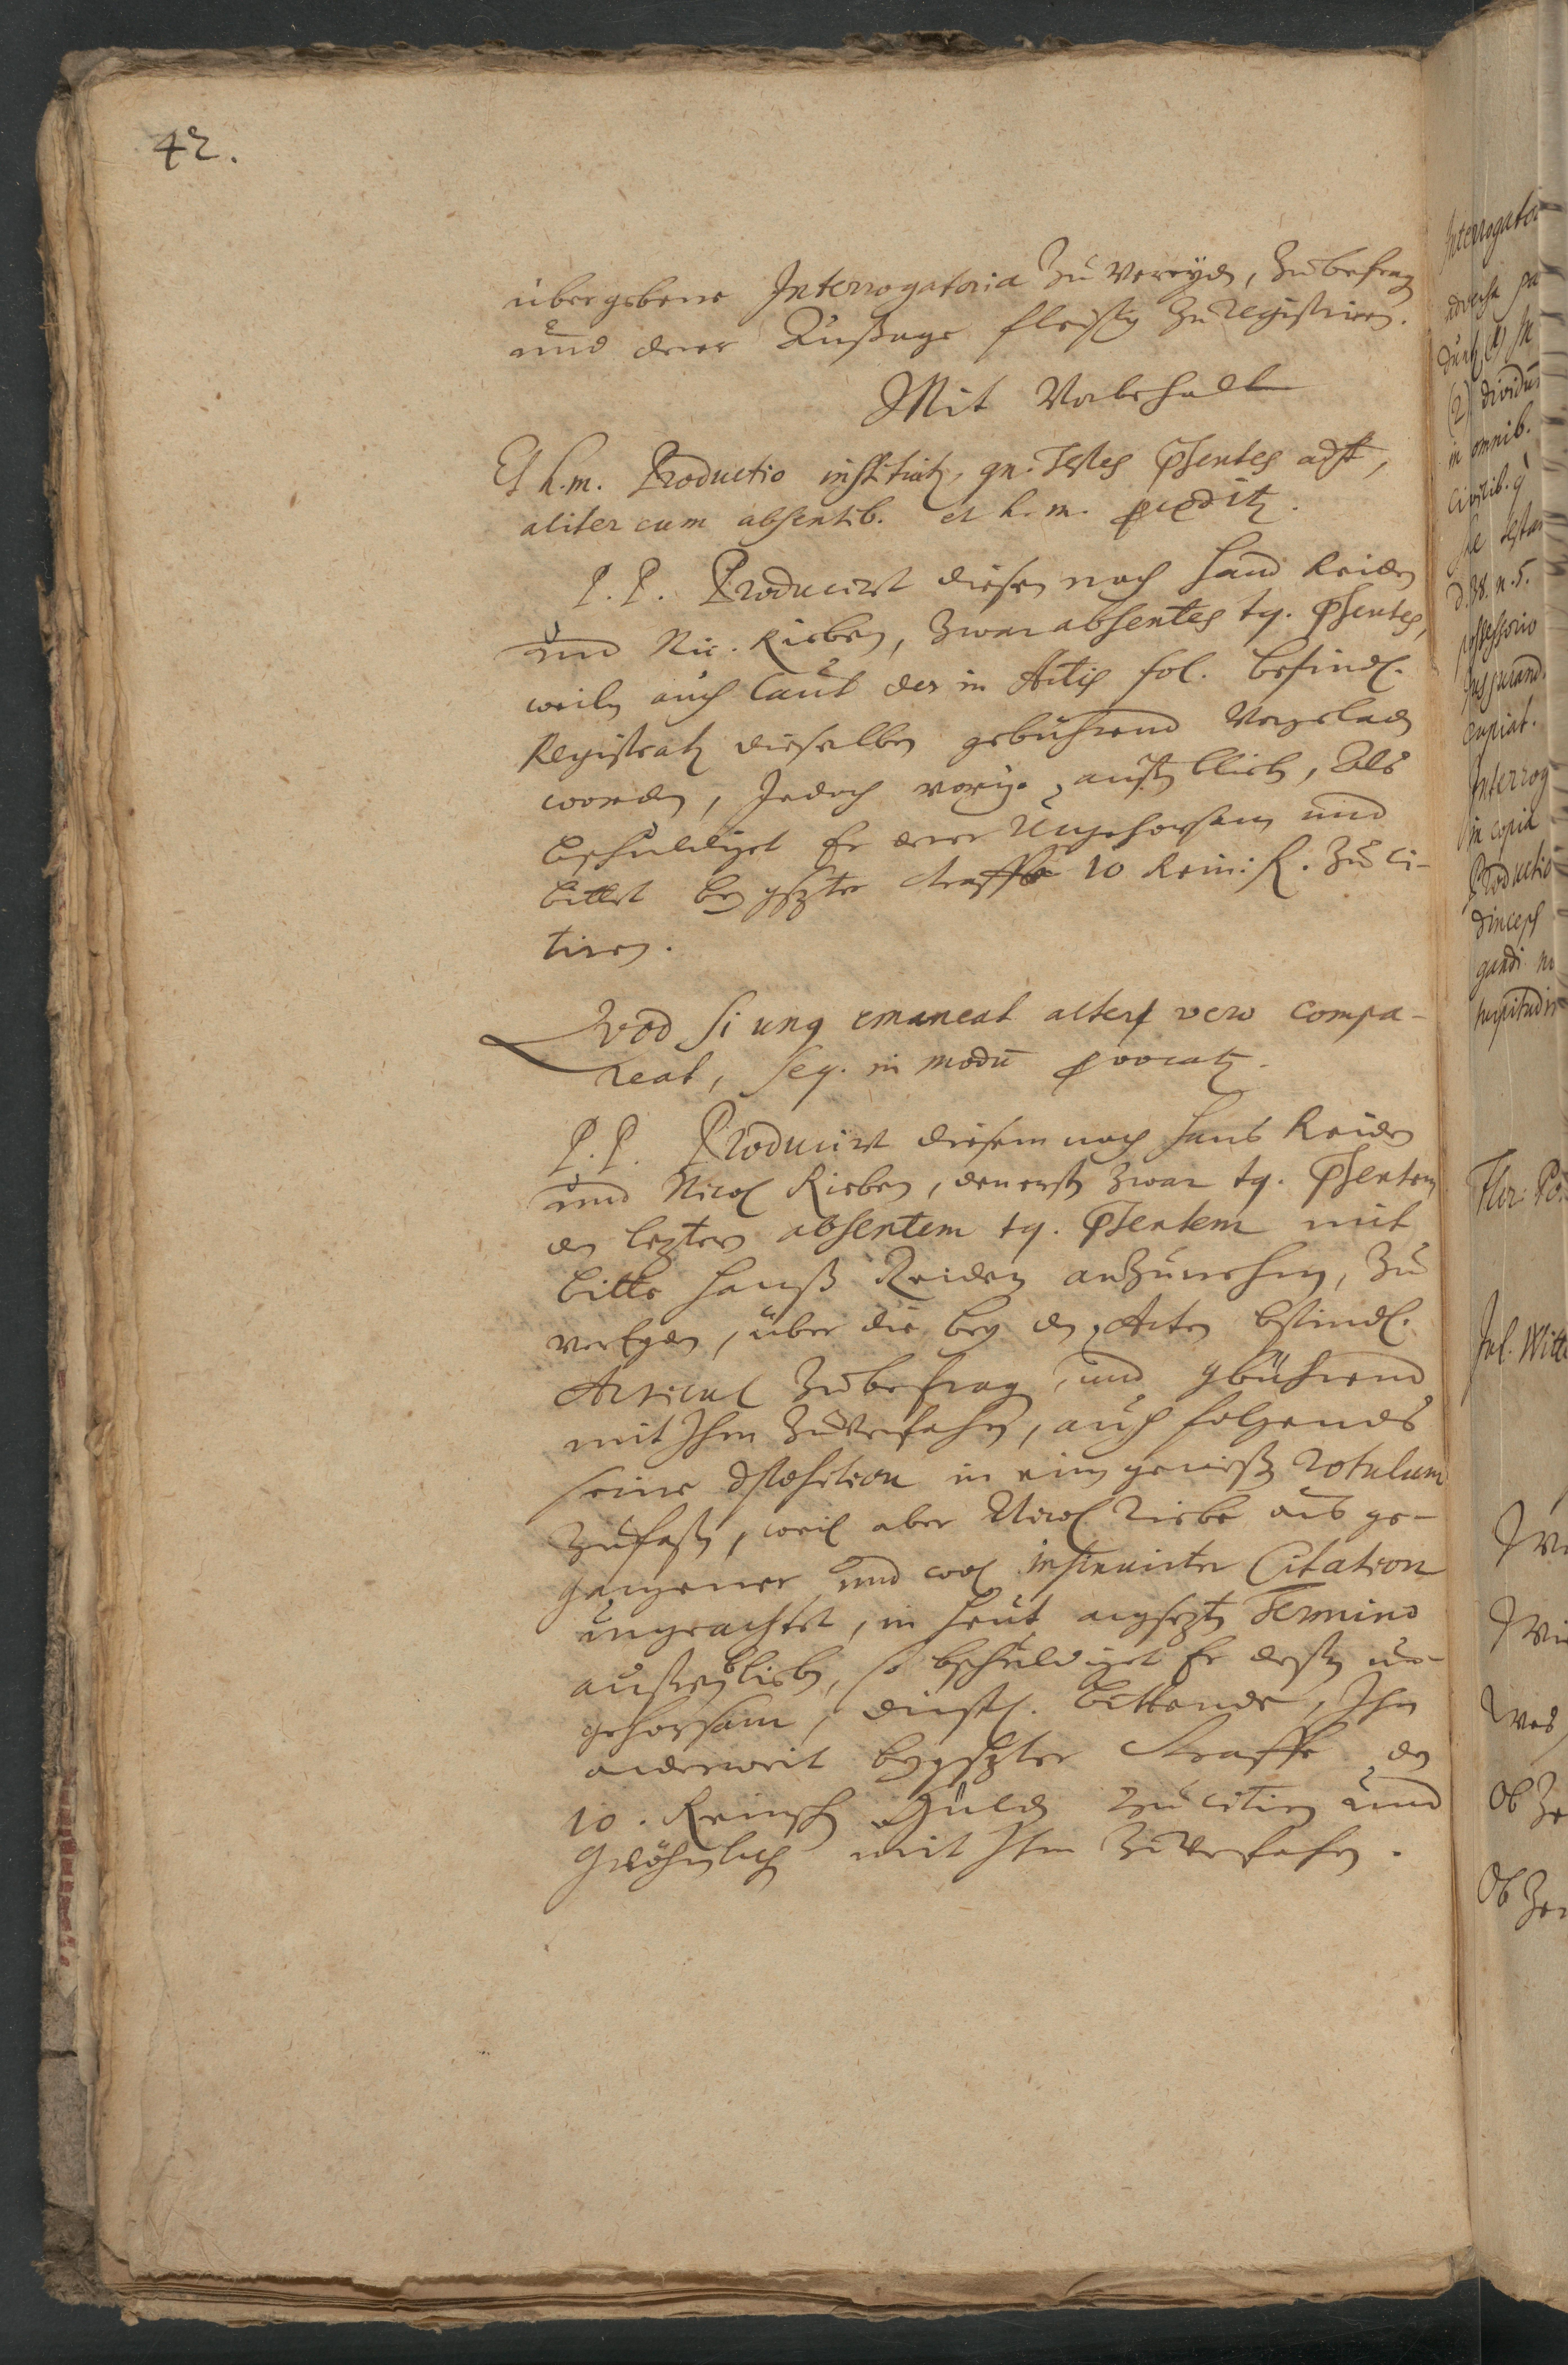 42.
übergebene Interrogatoria zu vereyden, zubefragen
und derer Außage fleißig zu registriren.
Mit Vorbehalt
Et h. m. Productio instituitur, qn. Testes Praesentes adst,
aliter cum absentib. et h. m. procedit.
P. P. Producirt diesen nach Hans Reiden
und Nic. Rieben, zwar absentes tq. Praesentes,
weiln auch laut der in Actis fol. befindl.
Registratur dieselben gebührend Vorgeladen
worden, Jedoch außenblieben, Als
beschuldiget Er derer Ungehorsam und
bittet bey gesetzter straffe 10 Rein: fl. zu ci-
tiren.
Quod si unq emaneat alter vero compa-
reat, seq. in modū provocatur.
P. P. Producirt diesem nach Hans Reiden
und Nicol Rieben, den ersten zwar tq. Praesentem
den letztern absentem tq. Praesentem mit
bitte Hanß Reiden anzunehmen, zu
vereyden, über die bey den Acten befindl.
Articul zubefragen, und gebührend
mit Ihm zuverfahren, auch folgends
seine deposition in einen gewießen rotulum
zufaßen, weil aber Nicol Riebe aus ge-
gangener und wol insinuirter Citation
ungeachtet, in heut angesetzten Termino
außenblieben, so beschuldiget Er deßen un-
gehorsam, dienstl. bittende, Ihn
anderweit bey gesetzter Straffe der
10. Reinisch Gulden zu citiren und
Gewöhnlich mit Ihm zu verfahren.
Interrogator
durch
(2) dividu
in omnib.
d. 38. n. 5.
possessorio
copiat.
Interrog
in copia
Productio
dinceps
gandi
turpitudin
Jul. Witte
Ob Ze
Ob Ze